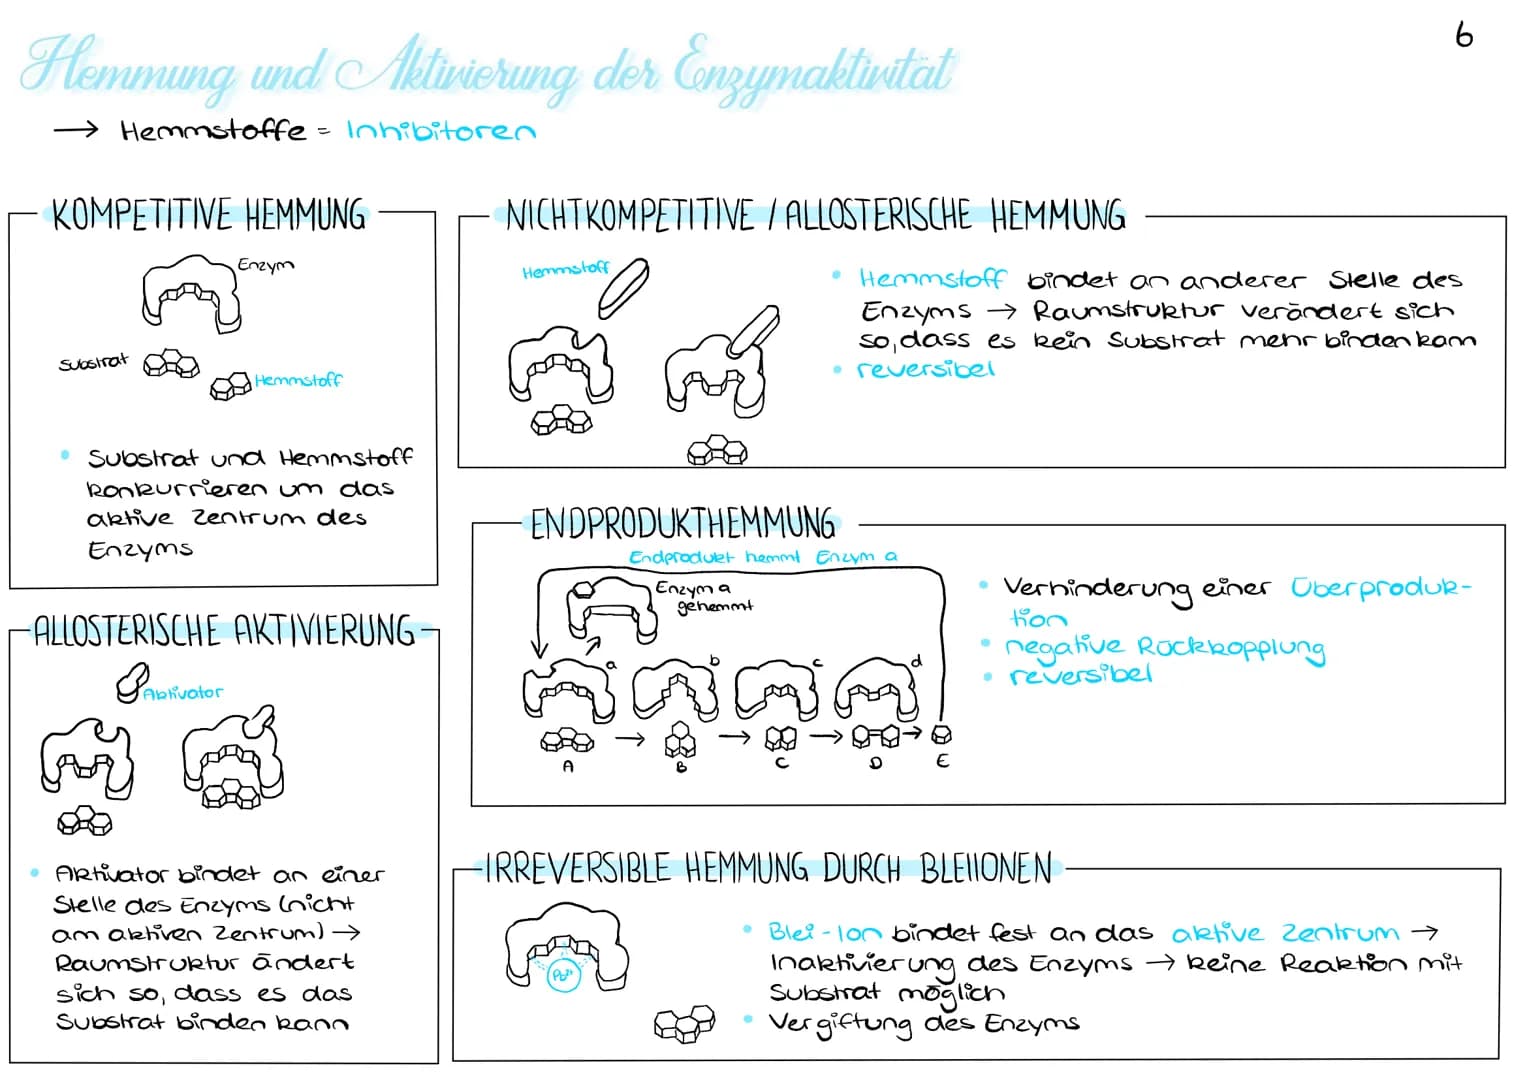 6
Hemmung und Aktivierung der Enzymaktivität
→ Hemmstoffe = Inhibitoren
KOMPETITIVE HEMMUNG
Enzym
Substrat
Hemmstoff
• Substrat und Hemmstoff
konkurrieren um das
aktive Zentrum des
Enzyms
NICHTKOMPETITIVE / ALLOSTERISCHE HEMMUNG
Hemmstoff
• Hemmstoff bindet an anderer Stelle des
Enzyms → Raumstruktur verändert sich
so, dass es kein Substrat mehr binden kann
• reversibel
ENDPRODUKTHEMMUNG
Endprodukt hemmt Enzym a
Enzym a
gehemmt
a b c d
→ → → →
A B C D E
• Verhinderung einer Überproduk-
tion
• negative Rückkopplung
• reversibel
ALLOSTERISCHE AKTIVIERUNG
Aktivator
• Aktivator bindet an einer
Stelle des Enzyms (nicht
am aktiven Zentrum) →
Raumstruktur ändert
sich so, dass es das
Substrat binden kann
IRREVERSIBLE HEMMUNG DURCH BLEIIONEN
Pb²⁺
• Blei-Ion bindet fest an das aktive Zentrum →
Inaktivierung des Enzyms → keine Reaktion mit
Substrat möglich
• Vergiftung des Enzyms